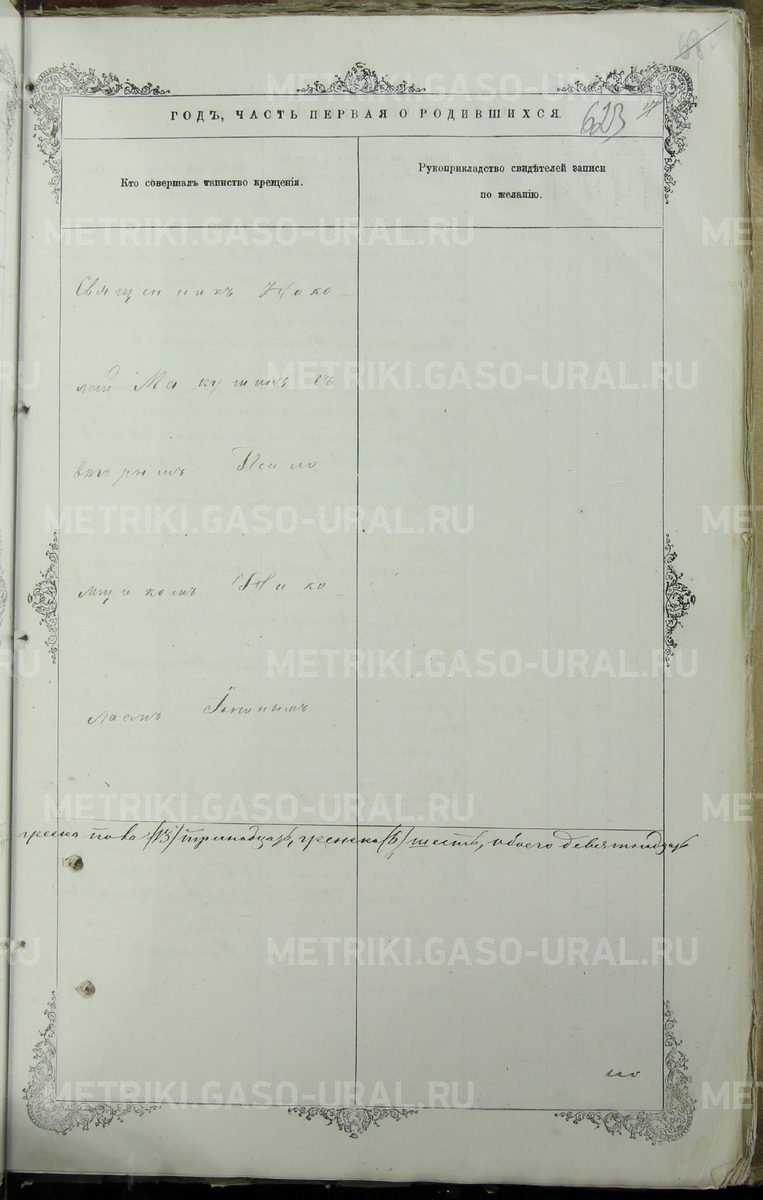 ГОДЪ, ЧАСТЬ ПЕРВАЯ О РОДИВШИХСЯ.
623
Кто совершалъ таинство крещенія.
Рукоприкладство свидѣтелей записи
по желанію.
Священникъ Нико
лай Макушинъ съ
вторымъ Псало
мщикомъ Нико
лаемъ
пола (13) тринадцать, женска (6) шесть, обоего девятнадцать
METRIKI.GASO-URAL.RU